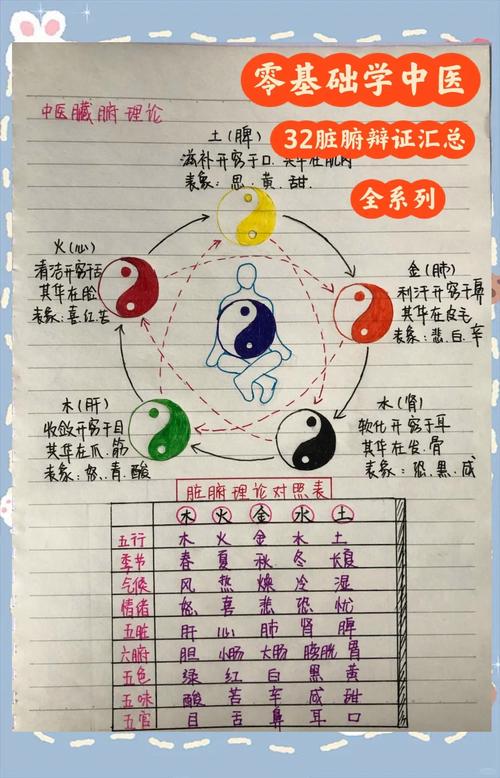 零基础学中医
32脏腑辩证汇总
全系列
中医臟腑理论
土(脾)
滋补开窍于口.其华在肌肉
表象:思.黄.甜.
火(心)
清洁开窍于舌
其华在脸
表象:喜.红.苦
金(肺)
利汗开窍于鼻
其华在皮毛
表象:悲.白.辛
木(肝)
收敛开窍于目
其华在爪.筋
表象:怒.青.酸
水(肾)
软化开窍于耳
其华在发.骨
表象:恐.黑.咸
脏腑理论对照表
木 火 金 水 土
五行 木 火 金 水 土
季节 春 夏 秋 冬 长夏
气候 风 热 燥 冷 湿
情绪 怒 喜 悲 恐 忧
五脏 肝 心 肺 肾 脾
六腑 胆 小肠 大肠 膀胱 胃
五色 绿 红 白 黑 黄
五味 酸 苦 辛 咸 甜
五官 目 舌 鼻 耳 口